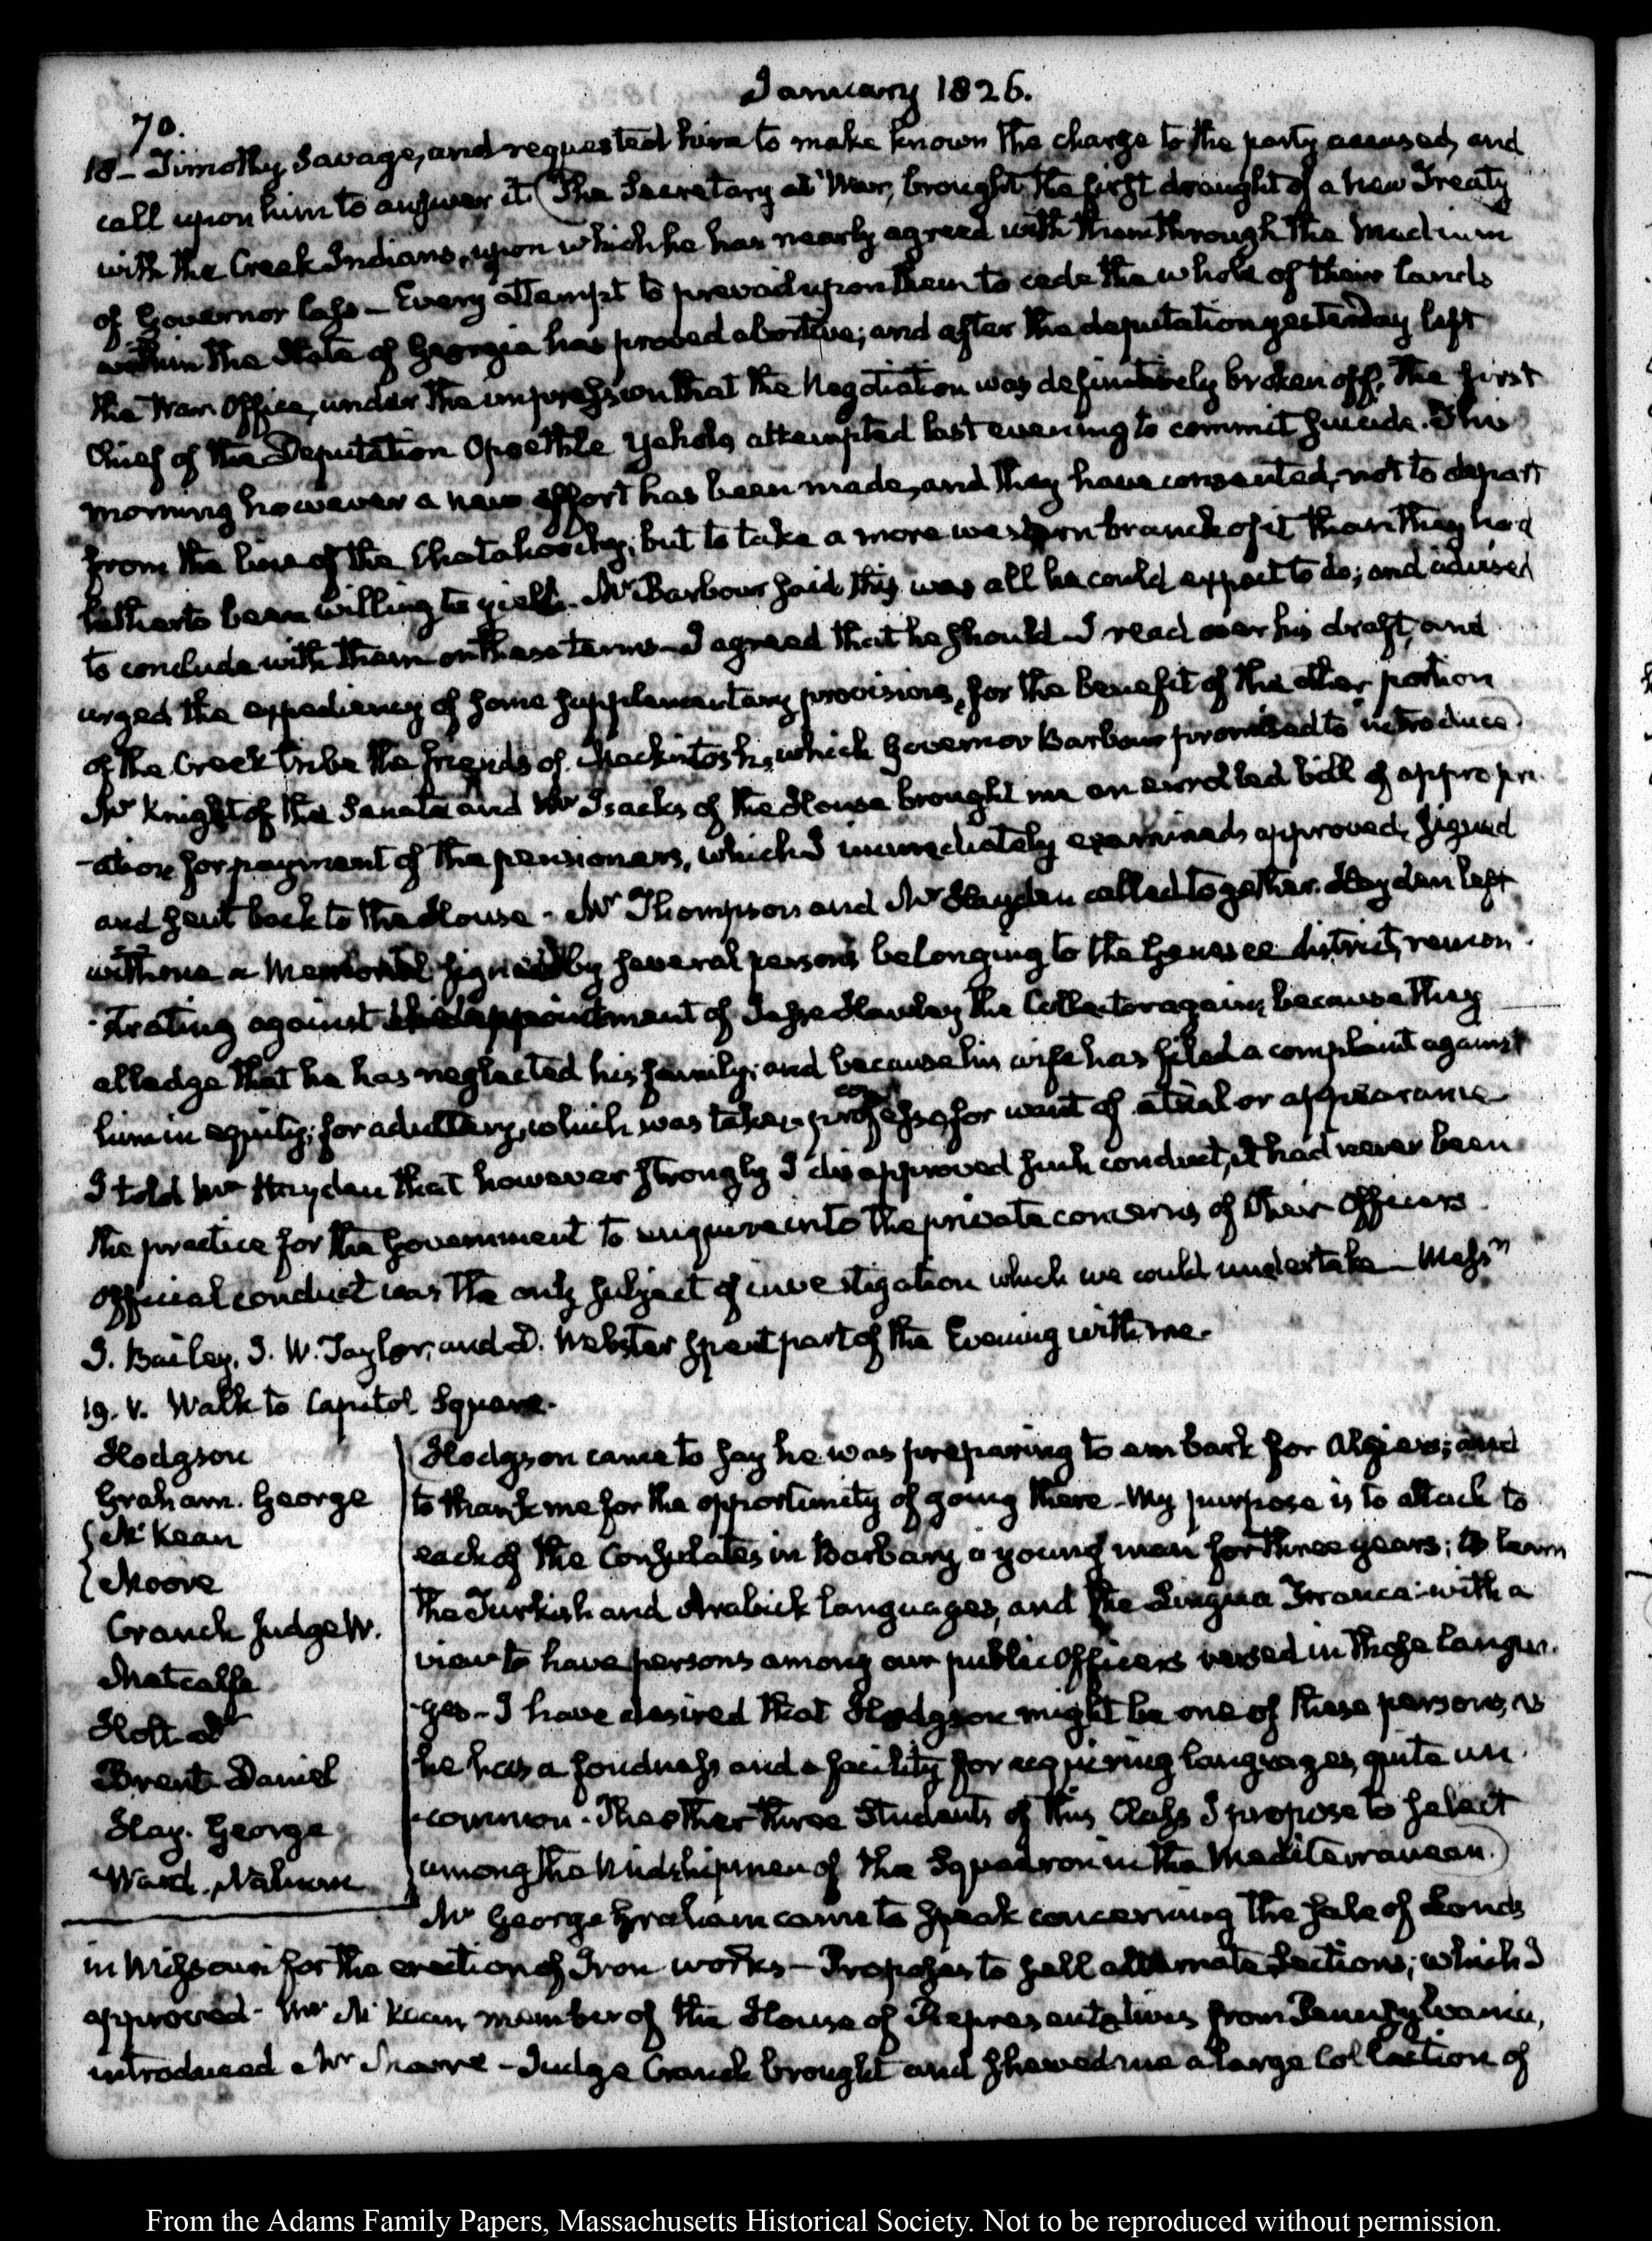 January 1826.
70.
18– Timothy Savage, and requested him to make known the charge to the party accused, and
call upon him to answer it. (The Secretary at War, brought the first drought of a new Treaty
with the Creek Indians, upon which he has nearly agreed with them through the Medium
of Governor Cass – Every attempt to prevail upon them to cede the whole of their lands
within the State of Georgia has proved abortive; and after the deputation yesterday left
the War Office, under the impression that the Negotiation was definitively broken off, the first
Chief of the Deputation Opoethle Yohola attempted last evening to commit suicide. This
morning however a new effort has been made, and they have consented, not to depart
from the line of the Chatahoochy; but to take a more western branch of it than they had
hitherto been willing to yield. Mr Barbour said this was all he could expect to do; and advised
to conclude with them on these terms – I agreed that he should – I read over his draft, and
urged the expediency of some supplementary provisions, for the benefit of the other portion
of the Creek tribe the friends of Mackintosh, which Governor Barbour promised to introduce)
Mr Knight of the Senate and Mr Isacks of the House brought me an enrolled bill of appropri
-ation for payment of the pensioners, which I immediately examined, approved, signed
and sent back to the House - Mr Thompson and Mr Hayden called together. Hayden left
with me a Memorial signed by several persons belonging to the Genesee district, remon-
-strating against the appointment of Jesse Hawley the Collector again; because they
alledge that he has neglected his family; and because his wife has filed a complaint against
him in equity, for adultery, which was taken pro
con
fesso for want of a trial or appearance
I told Mr Hayden that however strongly I disapproved such conduct, it had never been
the practice for the Government to enquire into the private concerns of their Officers.
Official conduct was the only subject of investigation which we could undertake – Messrs
J. Bailey, J. W. Taylor, and D. Webster spent part of the Evening with me.
19. V. Walk to Capitol Square.
Hodgson
Graham. George
McKean
Moore
Cranch Judge W.
Metcalfe
Holt
Brent Daniel
Hay. George
Ward. Nahum
Hodgson came to say he was preparing to embark for Algiers; and
to thank me for the opportunity of going there. My purpose is to attach to
each of the Consulates in Barbary a young man for three years; to learn
the Turkish and Arabick languages, and the Lingua Franca with a
view to have persons among our public Officers versed in those langua-
-ges – I have desired that Hodgson might be one of these persons, as
he has a fondness and a facility for acquiring languages quite un-
-common. The other three Students of this Class I propose to select
among the Midshipmen of the Squadron in the Mediterranean.)
Mr George Graham came to speak concerning the sale of Lands
in Missouri for the erection of Iron works – Proposes to sell alternate Sections; which I
approved. Mr McKean, member of the House of Representatives from Pennsylvania,
introduced a Mr Moore – Judge Cranch brought and shewed me a large Collection of
From the Adams Family Papers, Massachusetts Historical Society. Not to be reproduced without permission.